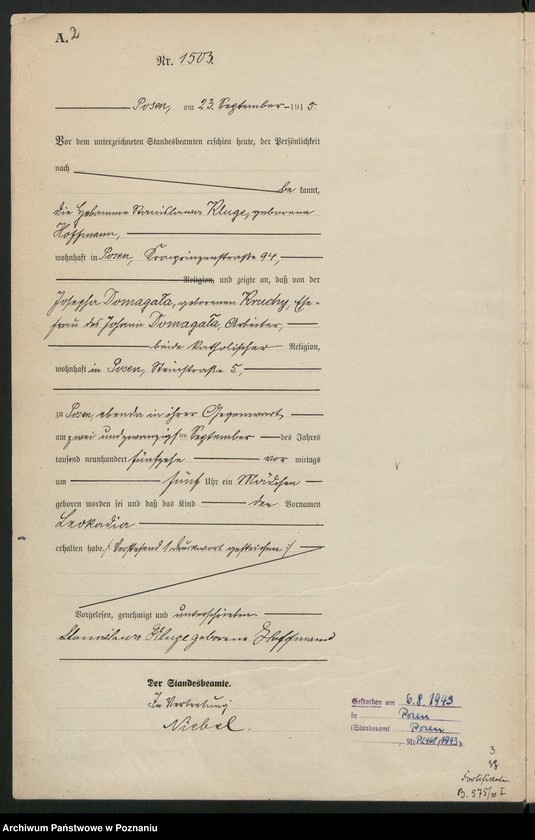 A. 2
Nr. 1503.
Posen, am 23. September 1915.
Vor dem unterzeichneten Standesbeamten erschien heute, der Persönlichkeit
nach
be kannt,
die Hebamme Stanislawa Kluge, geborene
Hoffmann,
wohnhaft in Posen, Kronprinzenstraße 94,
Religion, und zeigte an, daß von der
Josepha Domagała, geborenen Kruchy, Ehe-
frau des Johann Domagała, Arbeiter,
beide katholischer Religion,
wohnhaft in Posen, Steinstraße 5,
zu Posen, ebenda in ihrer Gegenwart,
am zwei undzwanzigsten September des Jahres
tausend neunhundert fünfzehn vor mittags
um fünf Uhr ein Mädchen
geboren worden sei und daß das Kind den Vornamen
Leokadia
erhalten habe. /: Vorstehend 1 Druckwort gestrichen :/
Vorgelesen, genehmigt und unterschrieben.
Stanislawa Kluge geborene Hoffmann
Der Standesbeamte.
In Vertretung
Niebel.
Gestorben am 6.8.1943
in Posen
(Standesamt Posen
Nr. 1943)
3
B. 575/10 I
Archiwum Państwowe w Poznaniu